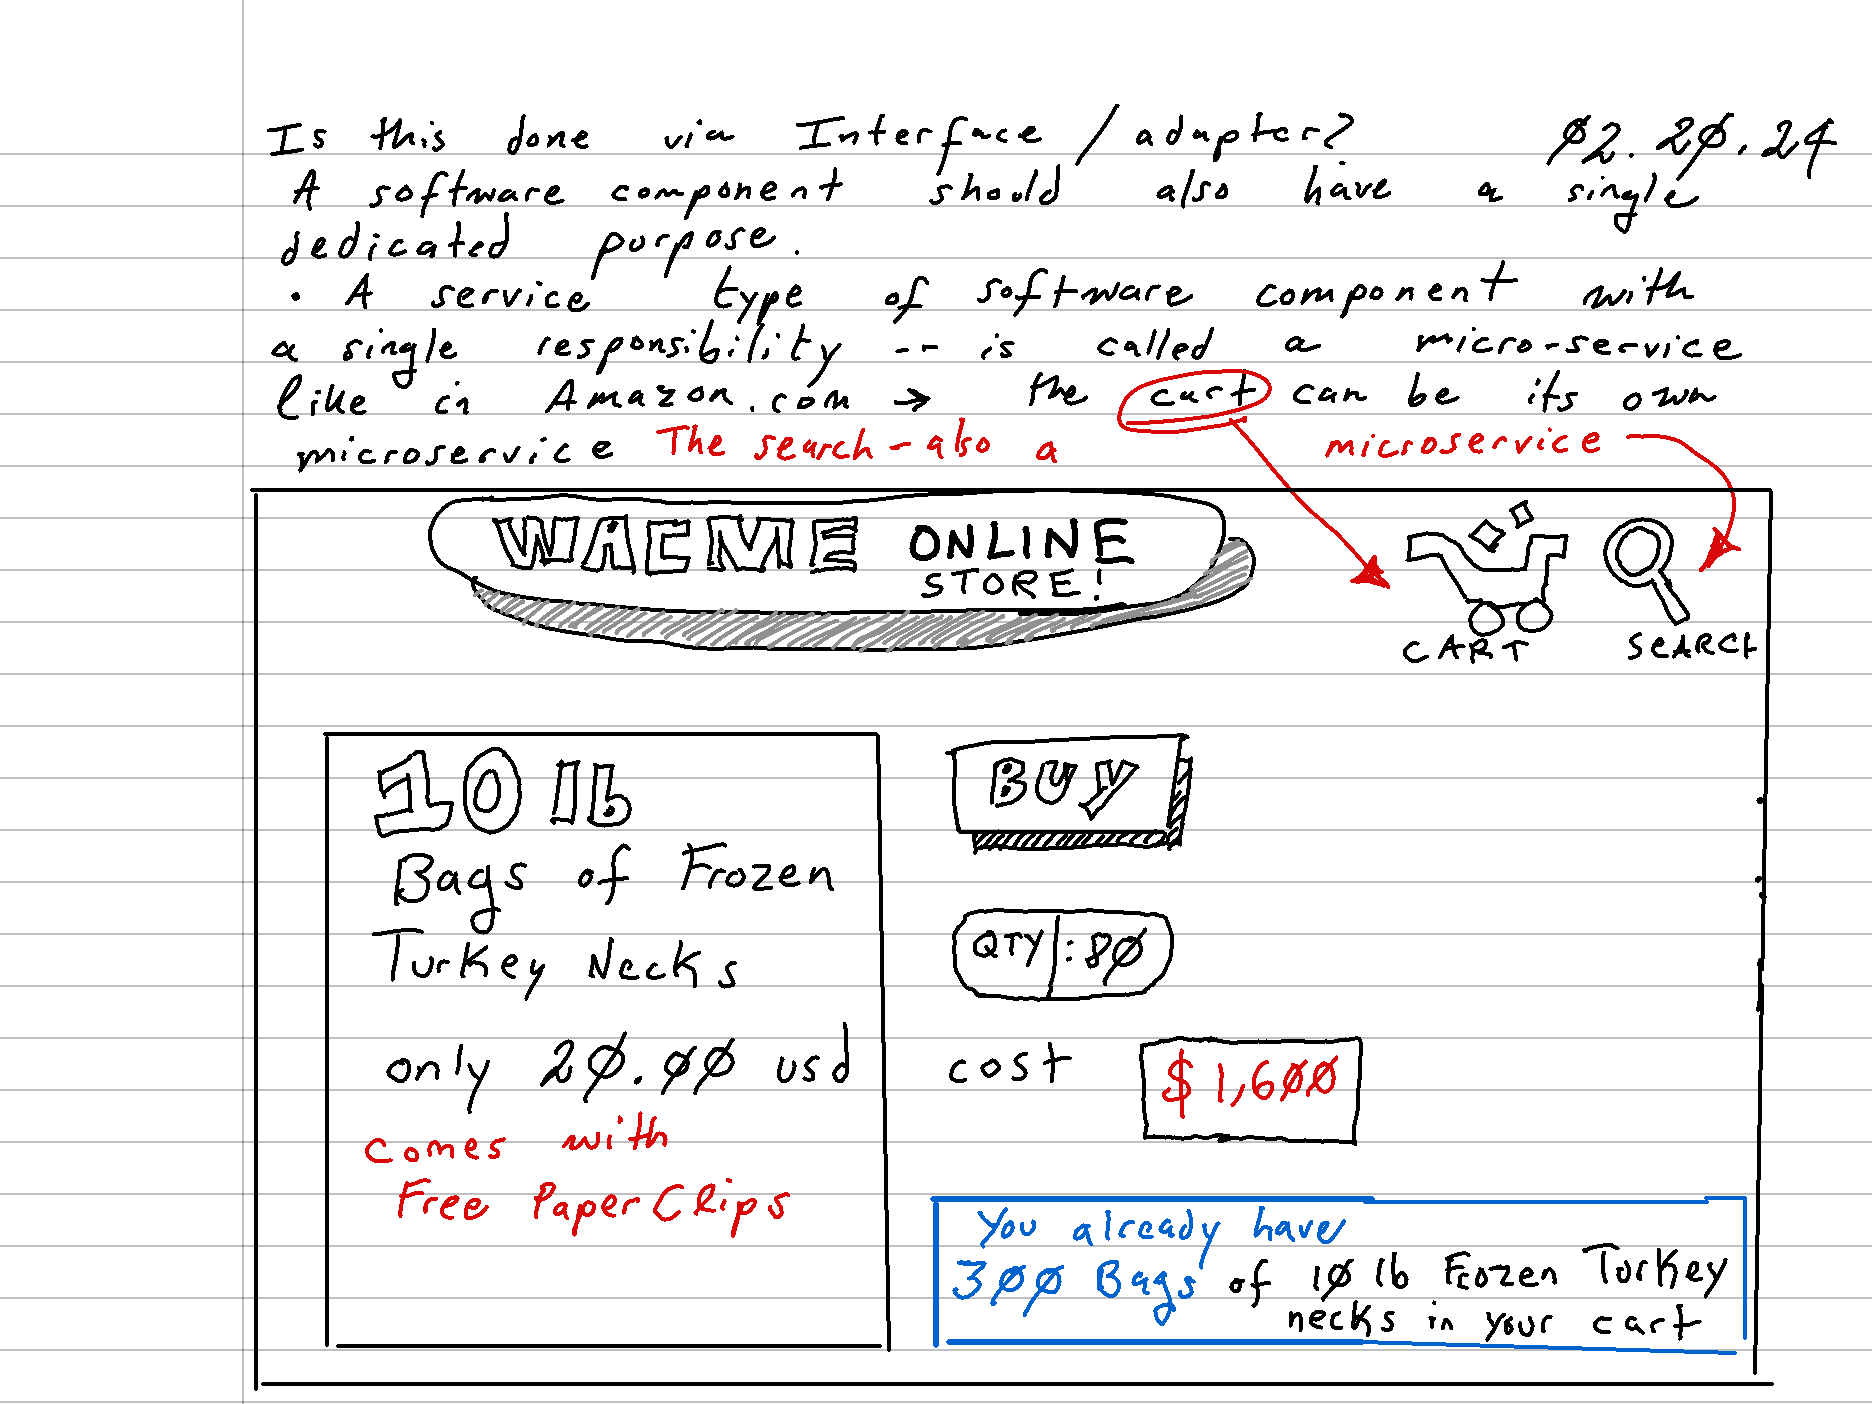 Is this done via Interface / adapter? 02.20.24
A software component should also have a single
dedicated purpose.
• A service type of software component with
a single responsibility -- is called a micro-service
like in Amazon.com → the cart can be its own
microservice The search - also a microservice
WACME ONLINE
STORE!
CART SEARCH
10 lb
Bags of Frozen
Turkey Necks
only 20.00 usd
comes with
Free PaperClips
BUY
QTY : 80
cost $1,600
You already have
300 Bags of 10 lb Frozen Turkey
necks in your cart